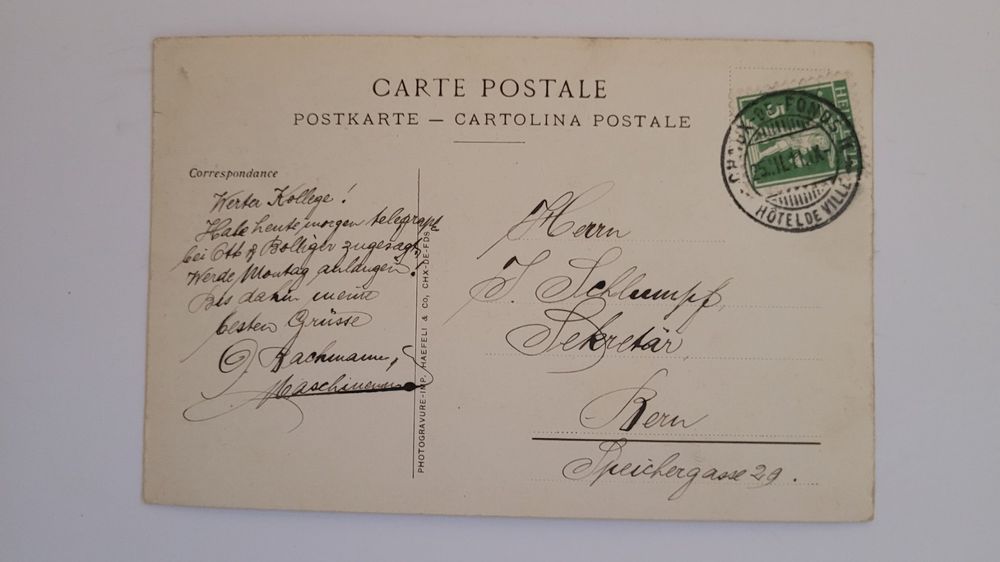 CARTE POSTALE
POSTKARTE — CARTOLINA POSTALE
Correspondance
Werter Kollege!
Habe heute morgen telegraph.
bei Ott & Bolliger zugesagt.
Werde Montag anlangen!
Bis dahin meine
besten Grüsse
Bachmann,
PHOTOGRAVURE-IMP. HAEFELI & CO, CHX-DE-FDS
Herrn
J. Schlumpf,
Sekretär,
Bern
Speichergasse 29.
HEL
CHAUX-DE-FONDS
HÔTEL DE VILLE